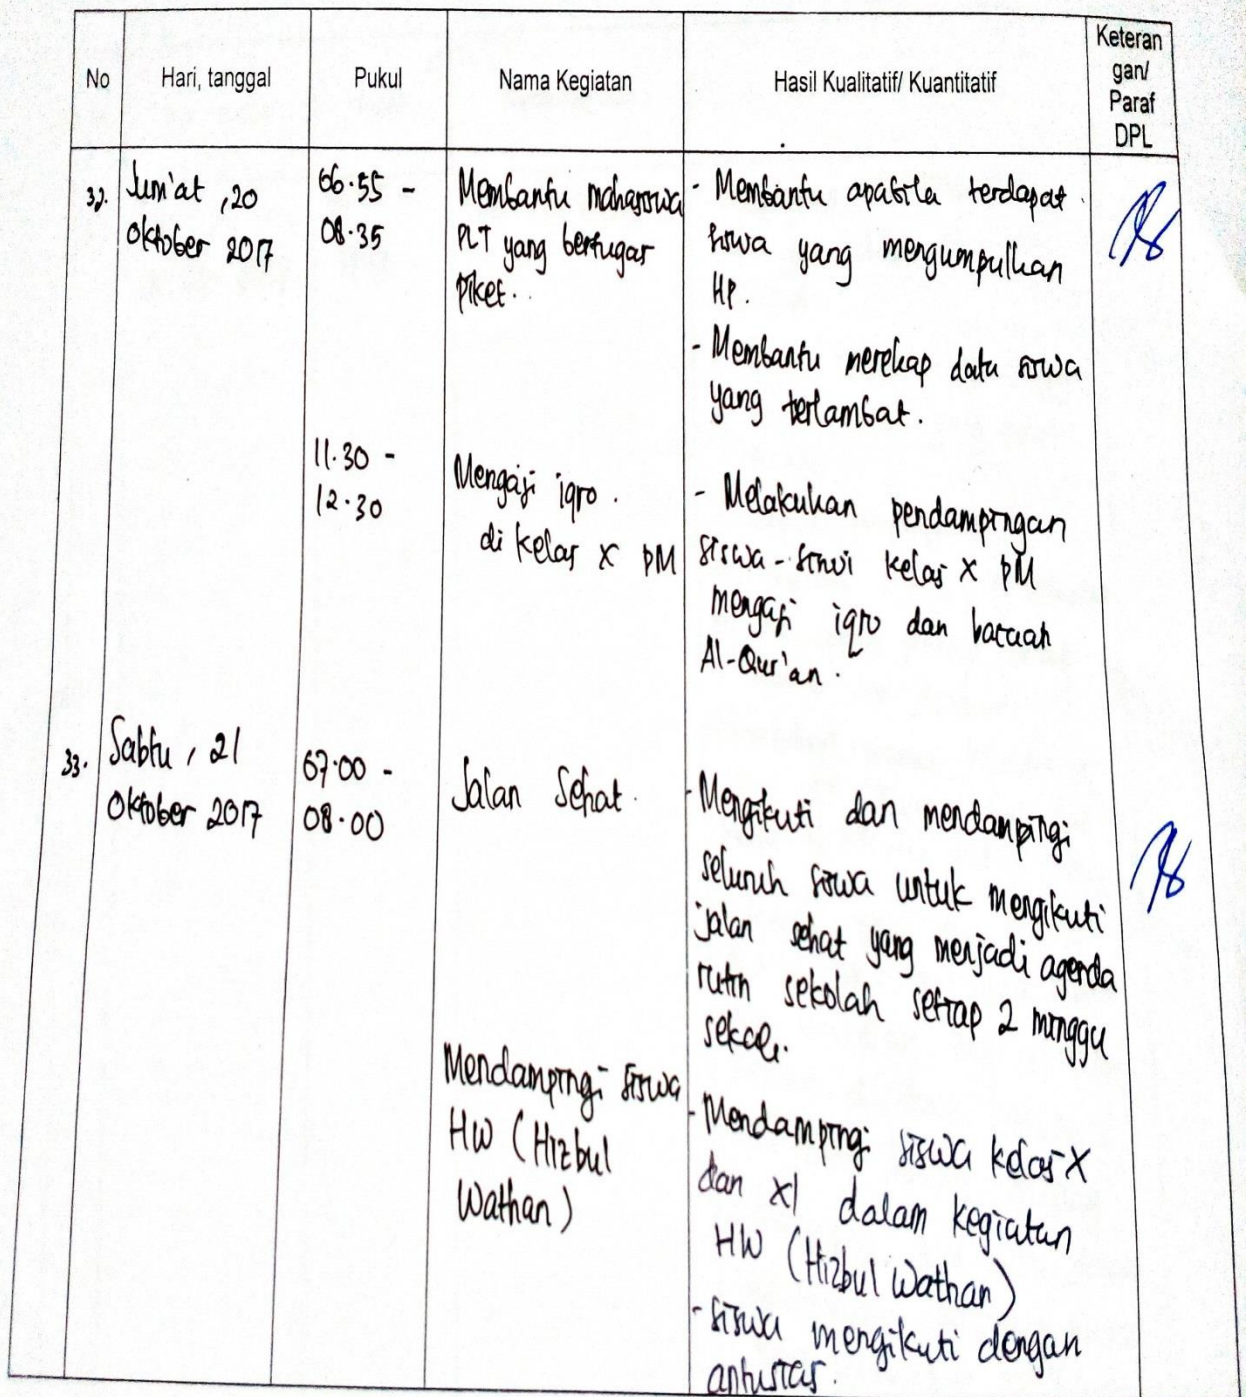 No
Hari, tanggal
Pukul
Nama Kegiatan
Hasil Kualitatif/ Kuantitatif
Keteran
gan/
Paraf
DPL
32.
Jum'at, 20
Oktober 2017
06.55 -
08.35
Membantu mahasiswa
PLT yang bertugas
piket.
- Membantu apabila terdapat
siswa yang mengumpulkan
HP.
- Membantu merekap data siswa
yang terlambat.
11.30 -
12.30
Mengaji iqro.
di kelas X PM
- Melakukan pendampingan
siswa-siswi kelas X PM
mengaji iqro dan bacaan
Al-Qur'an.
33.
Sabtu, 21
Oktober 2017
07.00 -
08.00
Jalan Sehat.
- Mengikuti dan mendampingi
seluruh siswa untuk mengikuti
jalan sehat yang menjadi agenda
rutin sekolah setiap 2 minggu
sekali.
Mendampingi siswa
HW (Hizbul
Wathan)
- Mendampingi siswa kelas X
dan XI dalam kegiatan
HW (Hizbul Wathan)
- Siswa mengikuti dengan
antusias.